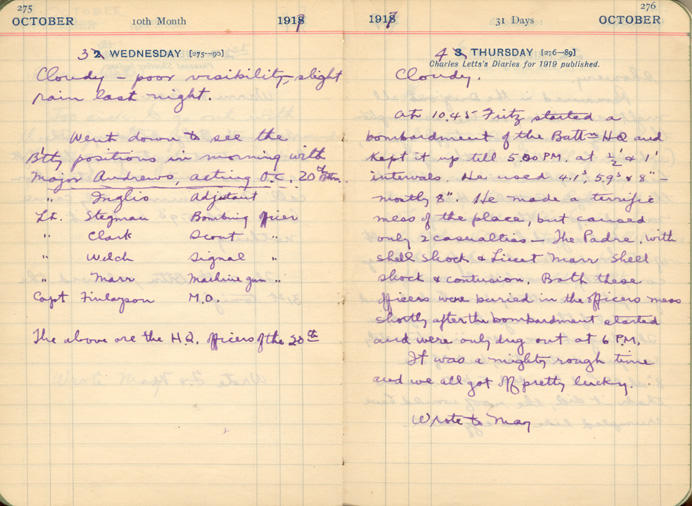 275
OCTOBER 10th Month 1917
3 2, WEDNESDAY [275—90]
Cloudy – poor visibility, slight
rain last night.
Went down to see the
Btty positions in morning with
Major Andrews, acting O.C. 20th Bttn.
" Inglis Adjutant
Lt. Stegman Bombing officer
" Clark Scout "
" Welch Signal "
" Marr Machine gun "
Capt Finlayson M.O.
The above are the H.Q. officers of the 20th
276
1917 31 Days OCTOBER
4 3, THURSDAY [276—89]
Charles Letts's Diaries for 1919 published.
Cloudy.
At 10.45 Fritz started a
bombardment of the Battn HQ and
kept it up till 5.00 PM. at ½' & 1'
intervals. He used 4.1s, 5.9s & 8" –
mostly 8". He made a terrific
mess of the place, but caused
only 2 casualties – The Padre, with
shell shock & Lieut Marr shell
shock & contusion. Both these
officers were buried in the officers mess
shortly after the bombardment started
and were only dug out at 6 P.M.
It was a mighty rough time
and we all got off pretty lucky.
Wrote to May